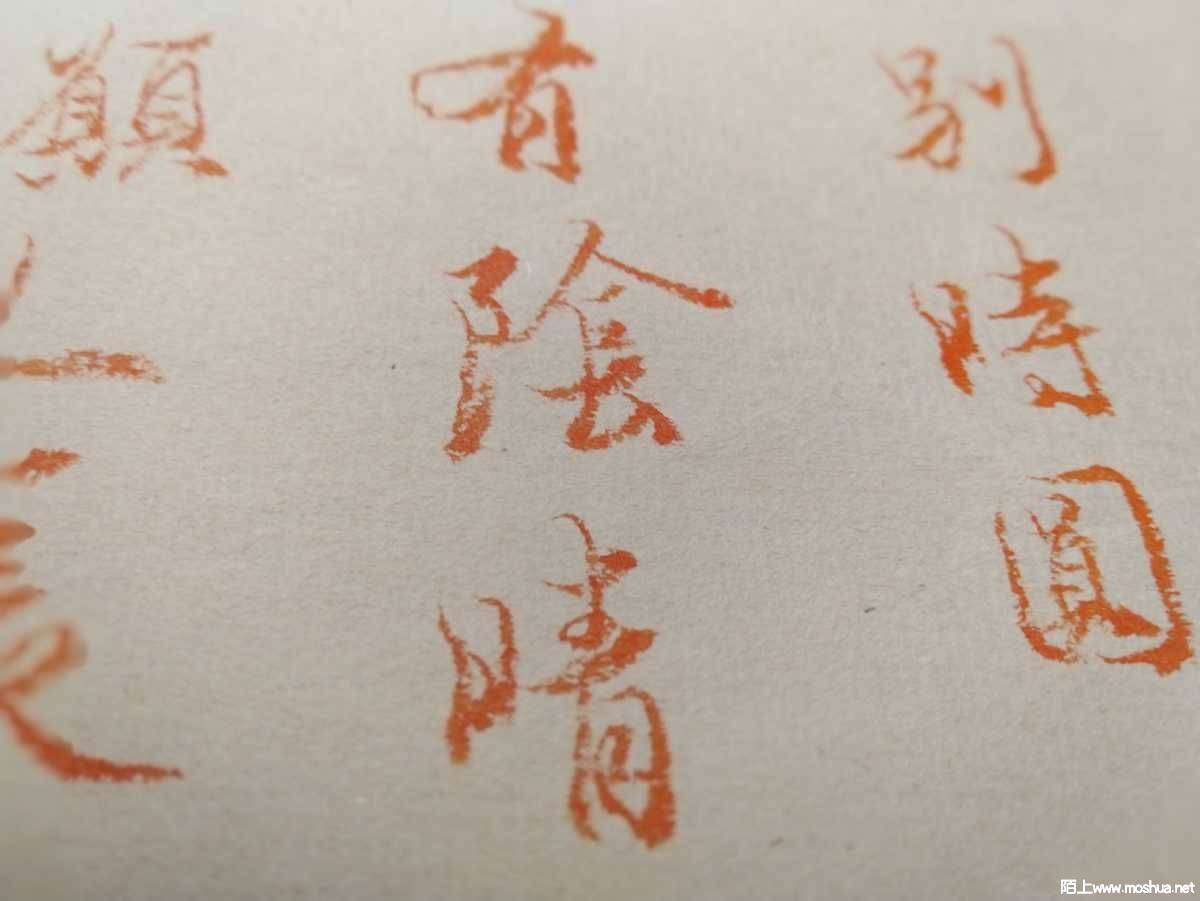 別時圓
有陰晴
願人長
陌上www.moshua.net